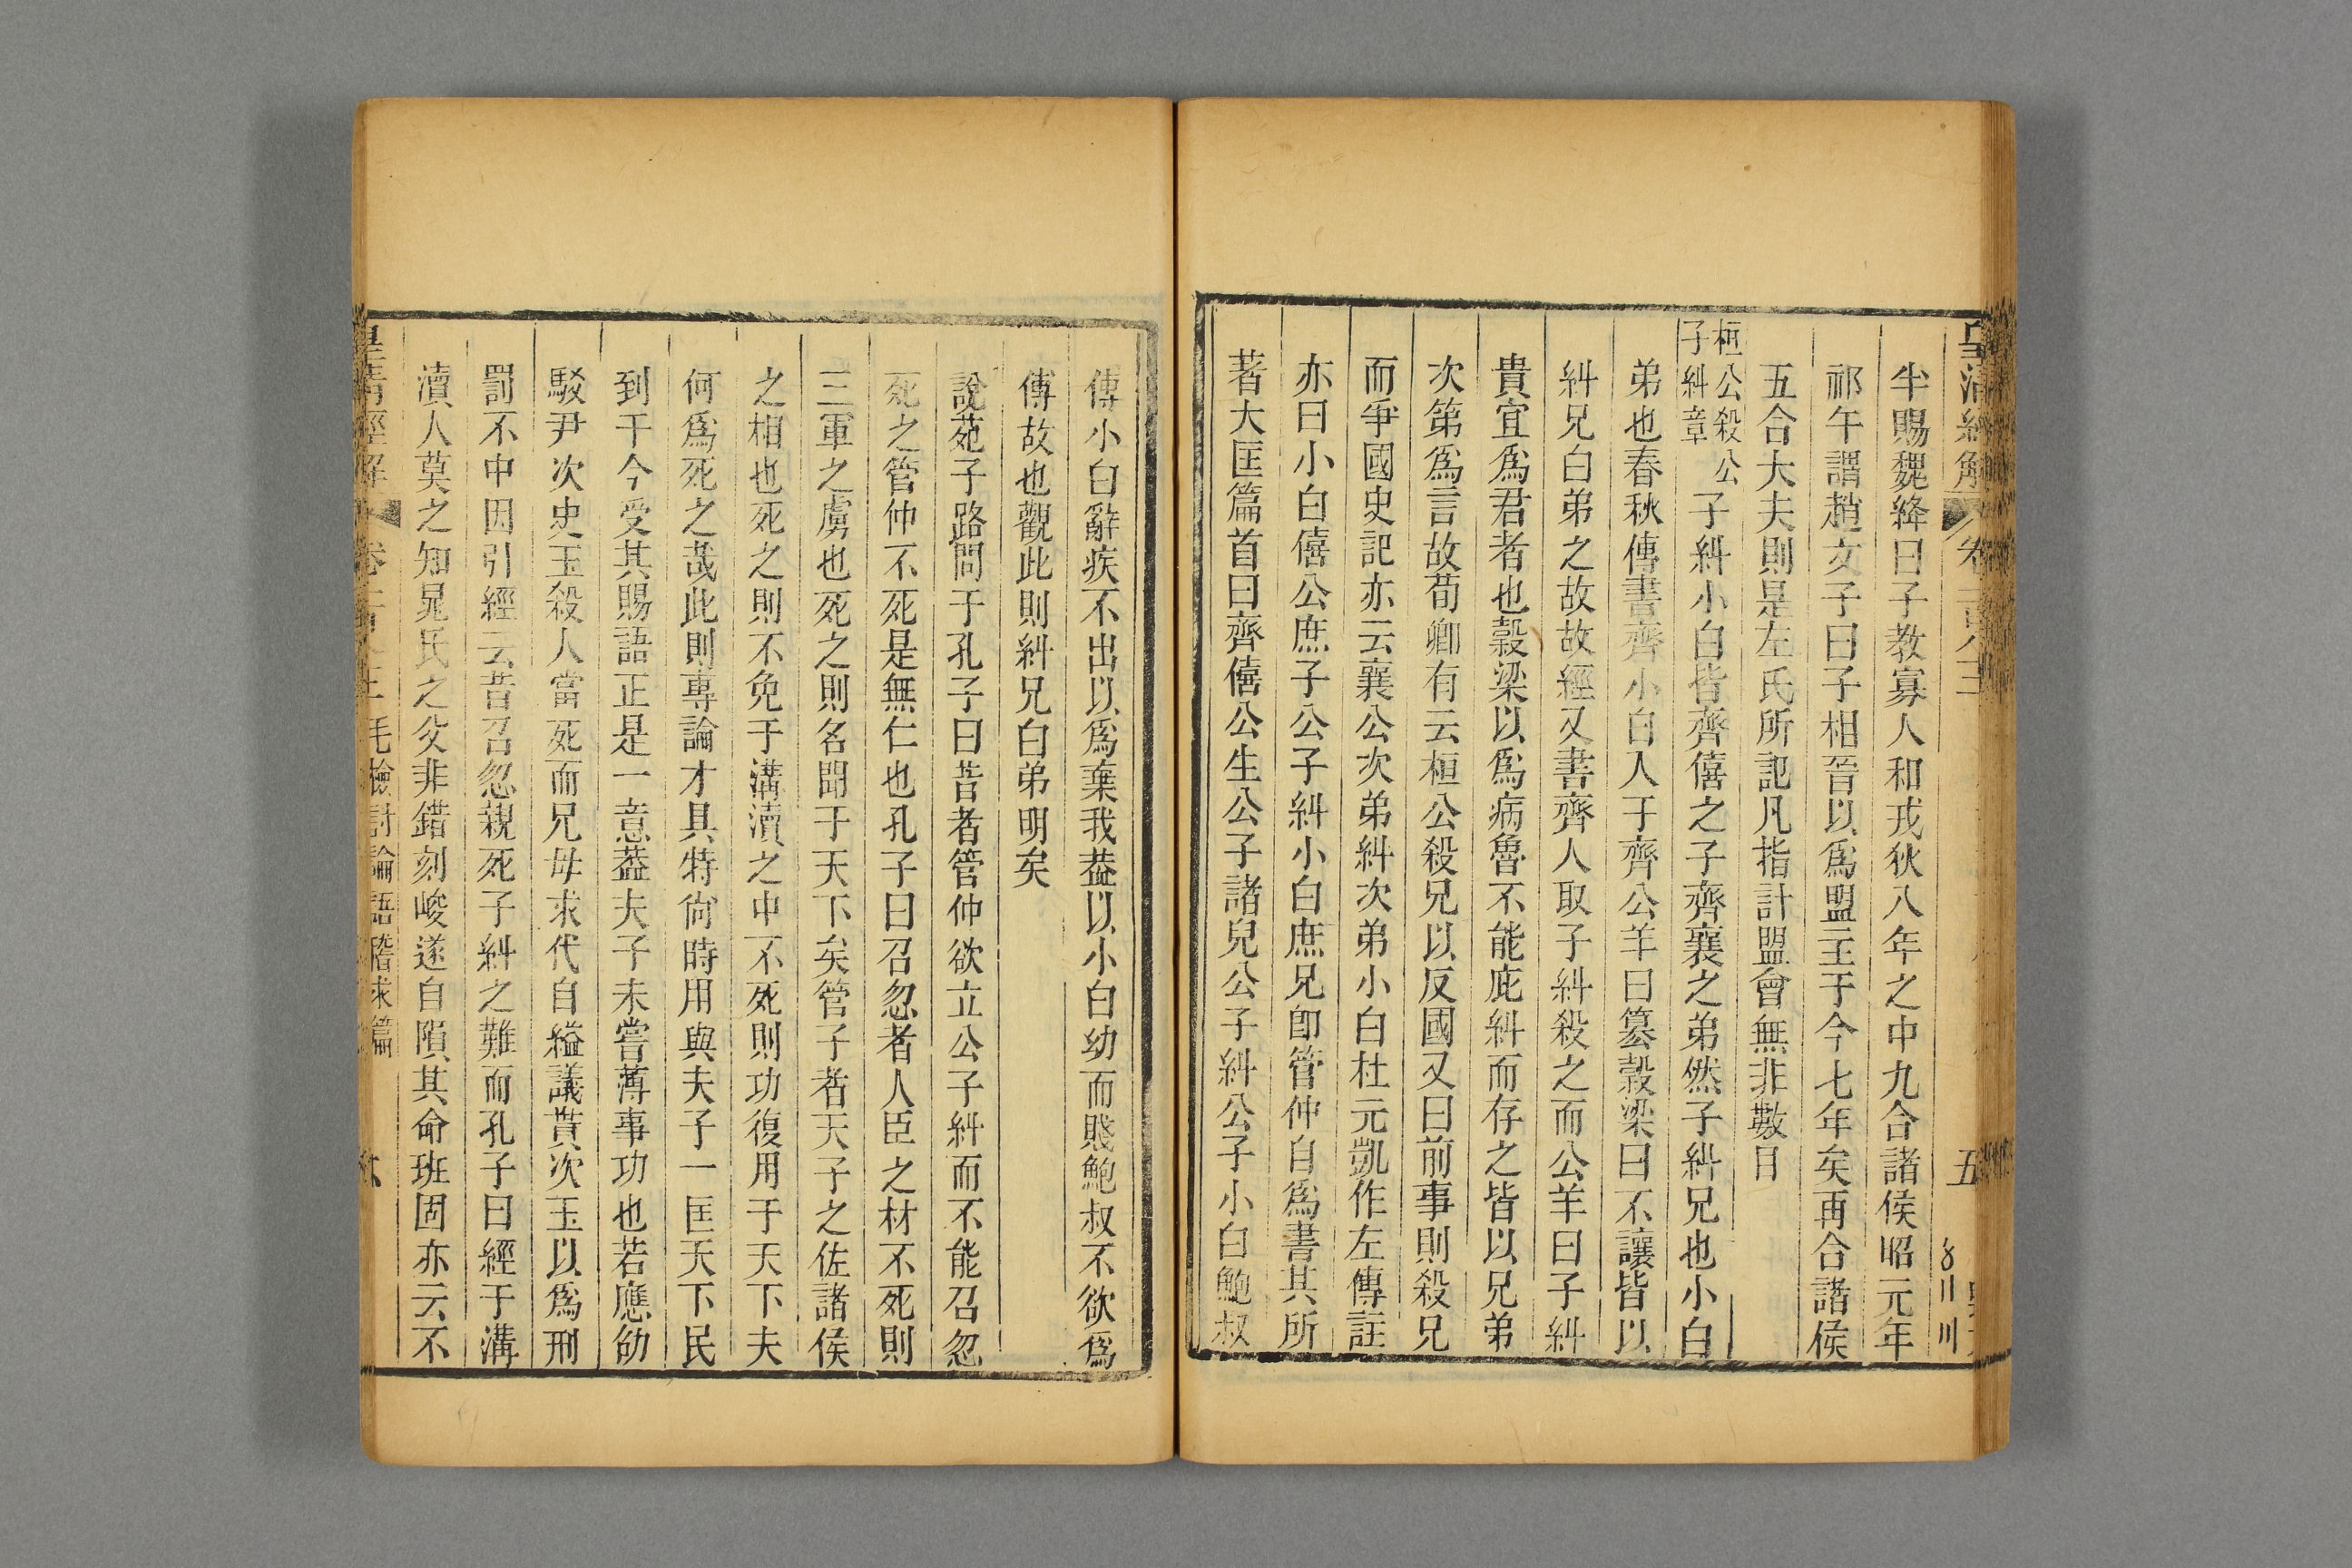 皇清經解 卷一百八十三 五
半賜魏絳曰子教寡人和戎狄八年之中九合諸侯昭元年
祁午謂趙文子曰子相晉以爲盟主于今七年矣再合諸侯
五合大夫則是左氏所記凡指計盟會無非數目
桓公殺公
子糾章
子糾小白皆齊僖之子齊襄之弟然子糾兄也小白
弟也春秋傳書齊小白入于齊公羊曰篡穀梁曰不讓皆以
糾兄白弟之故故經又書齊人取子糾殺之而公羊曰子糾
貴宜爲君者也穀梁以爲病魯不能庇糾而存之皆以兄弟
次第爲言故荀卿有云桓公殺兄以反國又曰前事則殺兄
而爭國史記亦云襄公次弟糾次弟小白杜元凱作左傳註
亦曰小白僖公庶子公子糾小白庶兄卽管仲自爲書其所
著大匡篇首曰齊僖公生公子諸兒公子糾公子小白鮑叔
傅小白辭疾不出以爲棄我葢以小白幼而賤鮑叔不欲爲
傅故也觀此則糾兄白弟明矣
說苑子路問于孔子曰昔者管仲欲立公子糾而不能召忽
死之管仲不死是無仁也孔子曰召忽者人臣之材不死則
三軍之虜也死之則名聞于天下矣管子者天子之佐諸侯
之相也死之則不免于溝瀆之中不死則功復用于天下夫
何爲死之哉此則專論才具特尙時用與夫子一匡天下民
到于今受其賜語正是一意葢夫子未嘗薄事功也若應劭
駁尹次史玉殺人當死而兄母求代自縊議貰次玉以爲刑
罰不中因引經云昔召忽親死子糾之難而孔子曰經于溝
瀆人莫之知鼂氏之父非錯刻峻遂自隕其命班固亦云不
皇清經解 卷一百八十三 毛檢討論語稽求篇 六